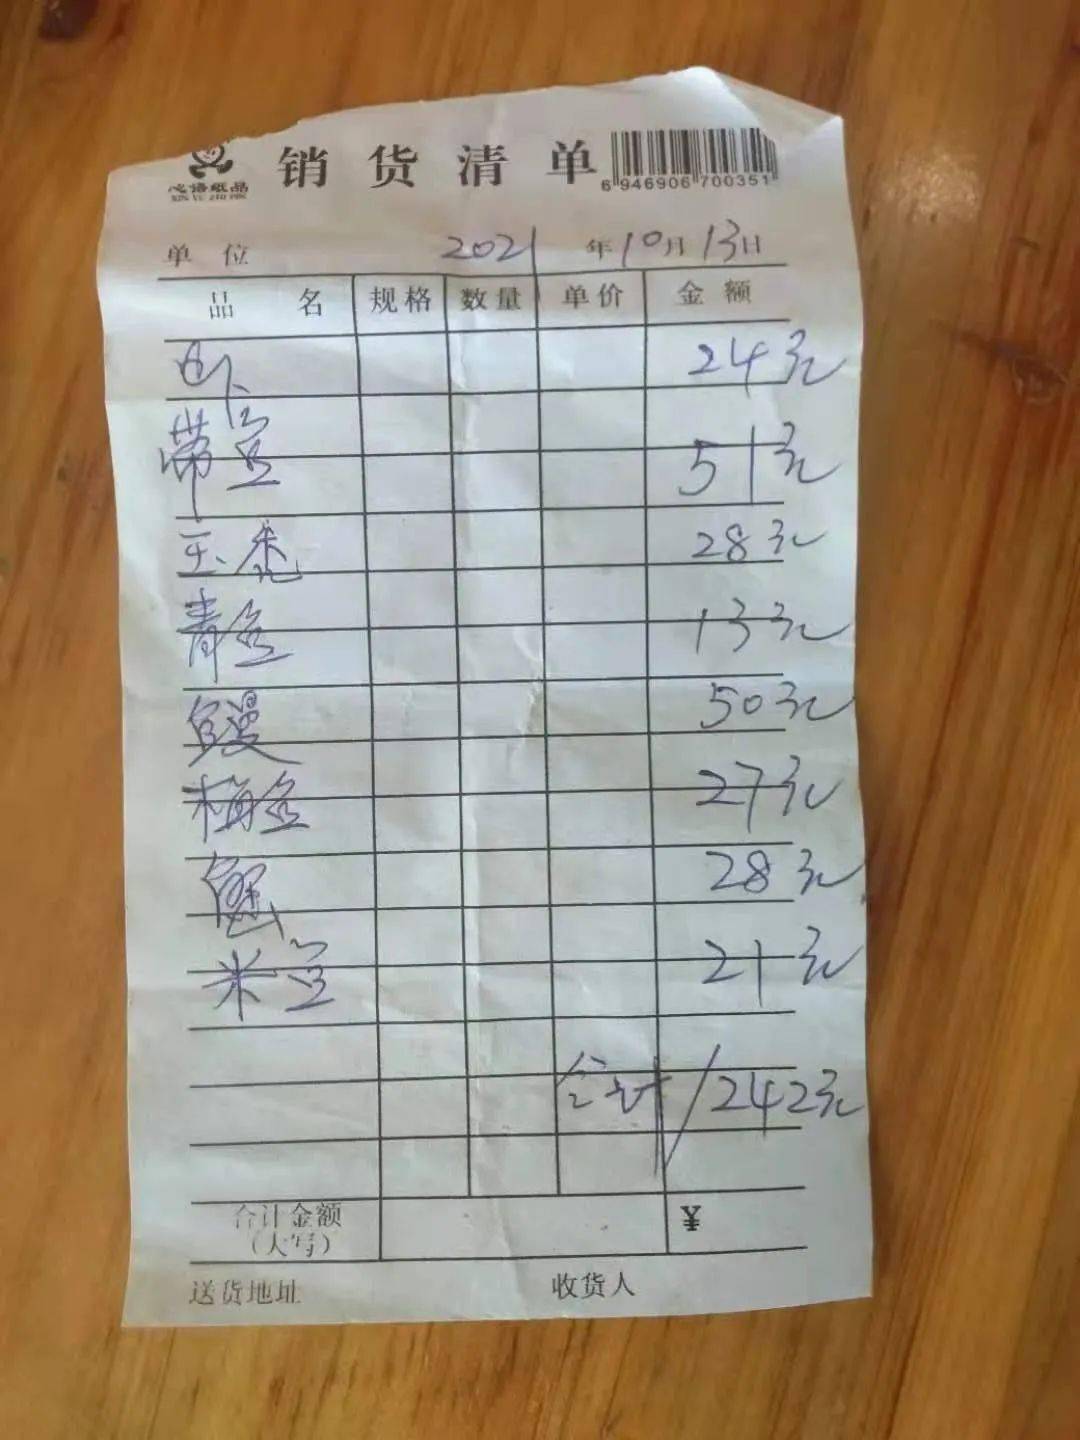 心悟纸品 销货清单 6 946906 700351
单位 2021 年 10 月 13 日
品名 规格 数量 单价 金额
24元
带鱼 51元
玉秃 28元
青鱼 13元
鳗 50元
梅鱼 27元
蟹 28元
米鱼 21元
合计 / 242元
合计金额 ¥
(大写)
送货地址 收货人